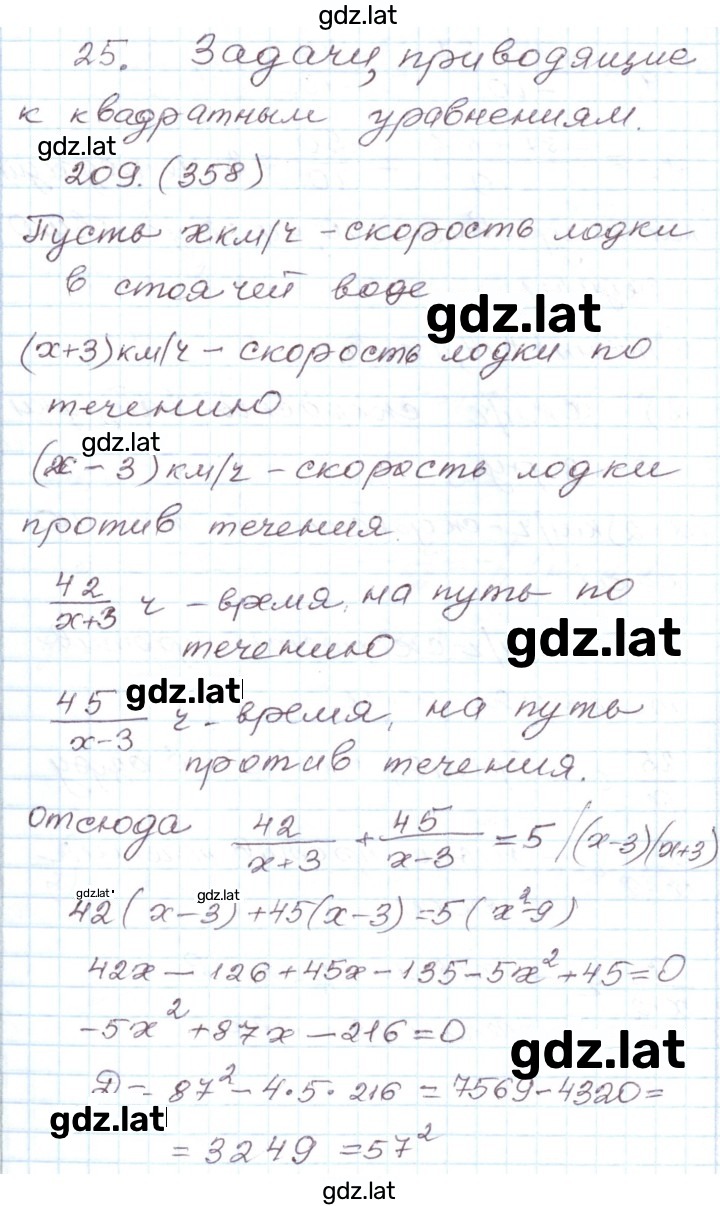 gdz.lat
25. Задачи, приводящие
к квадратным уравнениям.
gdz.lat
209. (358)
Пусть x км/ч - скорость лодки
в стоячей воде
gdz.lat
(x+3) км/ч - скорость лодки по
течению
gdz.lat
(x - 3) км/ч - скорость лодки
против течения.
42/(x+3) ч - время, на путь по
течению
gdz.lat
gdz.lat
45/(x-3) ч - время, на путь
против течения.
Отсюда 42/(x+3) + 45/(x-3) = 5 /(x-3)(x+3)
gdz.lat gdz.lat
42(x-3)+45(x-3)=5(x²-9)
42x - 126+45x-135-5x²+45=0
-5x²+87x-216=0
gdz.lat
D = 87²-4·5·216 = 7569-4320=
gdz.lat
= 3249 =57²
gdz.lat